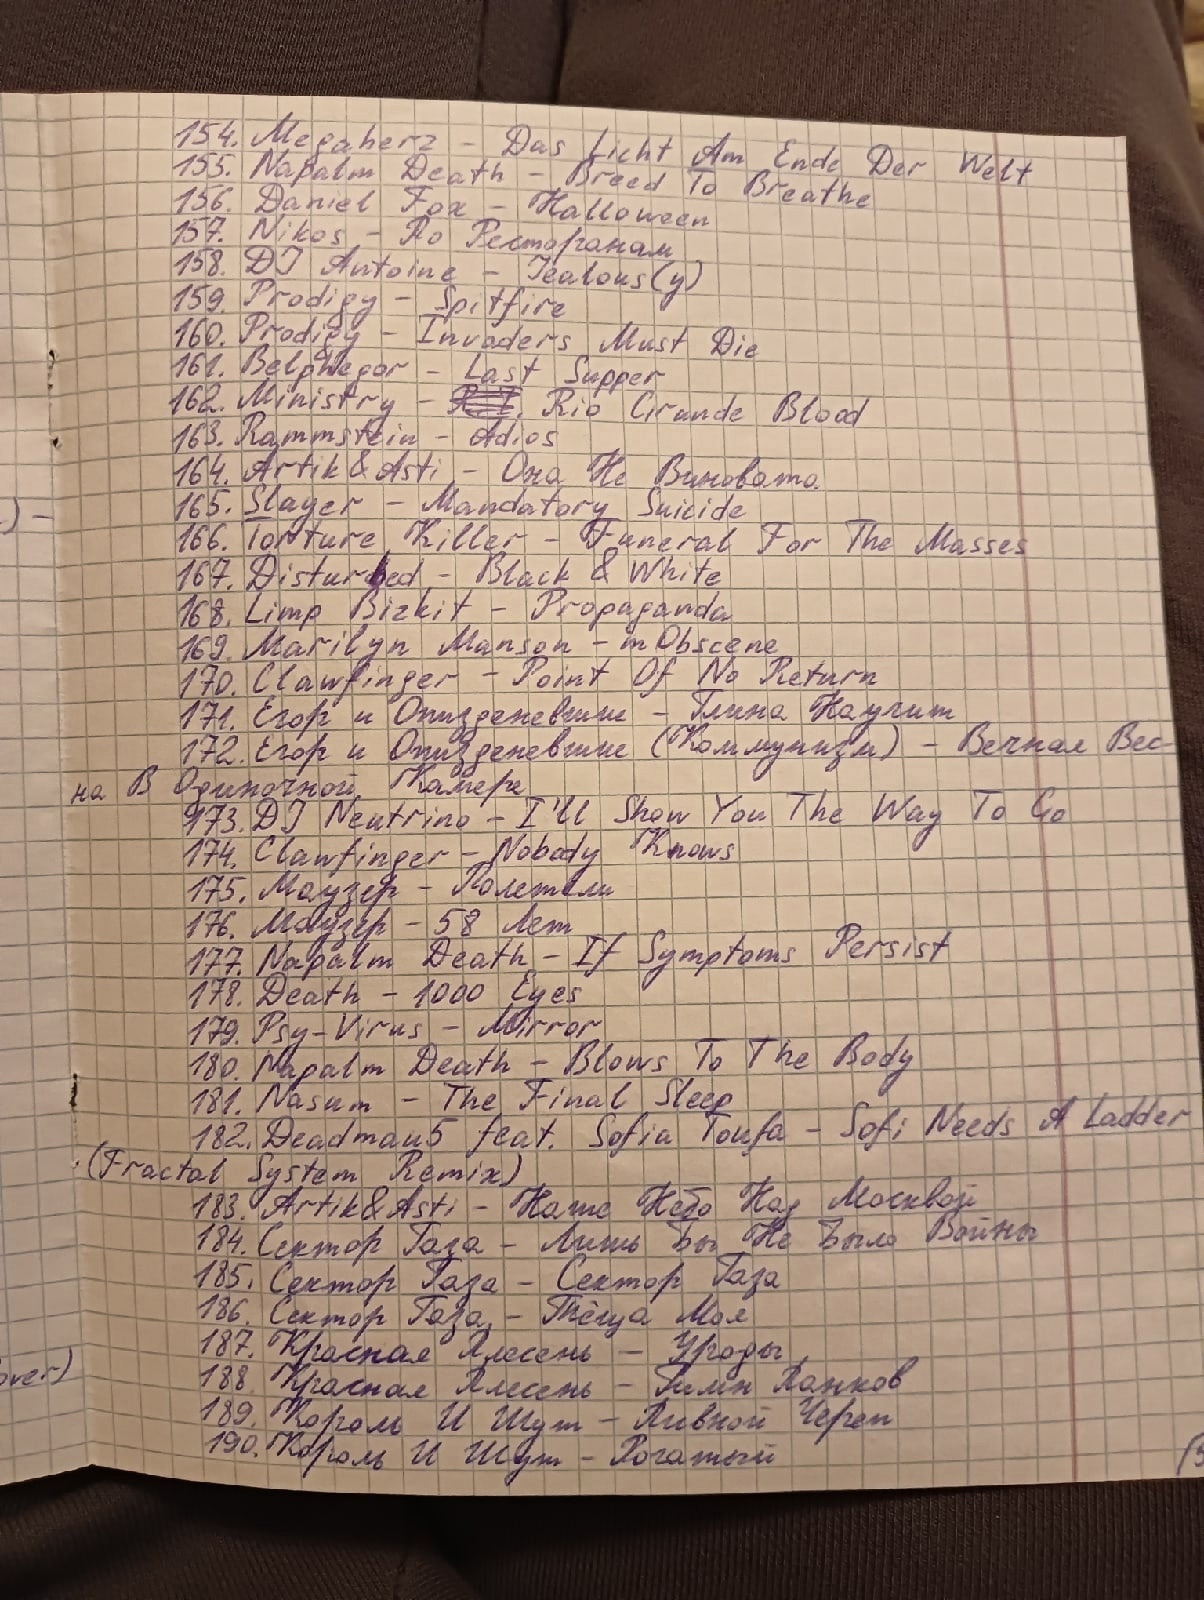 154. Megaherz - Das Licht Am Ende Der Welt
155. Napalm Death - Breed To Breathe
156. Daniel Fox - Halloween
157. Nikos - По Ресторанам
158. DJ Antoine - Jealous(y)
159. Prodigy - Spitfire
160. Prodigy - Invaders Must Die
161. Belphegor - Last Supper
162. Ministry - Rio Grande Blood
163. Rammstein - Adios
164. Artik&Asti - Она Не Виновата.
165. Slayer - Mandatory Suicide
166. Torture Killer - Funeral For The Masses
167. Disturbed - Black & White
168. Limp Bizkit - Propaganda
169. Marilyn Manson - mObscene
170. Clawfinger - Point Of No Return
171. Егор и Опизденевшие - Глина Научит
172. Егор и Опизденевшие (Коммунизм) - Вечная Вес-
на В Одиночной Камере
173. DJ Neutrino - I'll Show You The Way To Go
174. Clawfinger - Nobody Knows
175. Маузер - Полетели
176. Маузер - 58 Лет
177. Napalm Death - If Symptoms Persist
178. Death - 1000 Eyes
179. Psy-Virus - Mirror
180. Napalm Death - Blows To The Body
181. Nasum - The Final Sleep
182. Deadmau5 feat. Sofia Toufa - Sofi Needs A Ladder
(Fractal System Remix)
183. Artik&Asti - Наше Небо Над Москвой
184. Сектор Газа - Лишь Бы Не Было Войны
185. Сектор Газа - Сектор Газа
186. Сектор Газа - Тёща Моя
187. Красная Плесень - Уроды
188. Красная Плесень - Гимн Панков
189. Король И Шут - Пивной Череп
190. Король И Шут - Рогатый